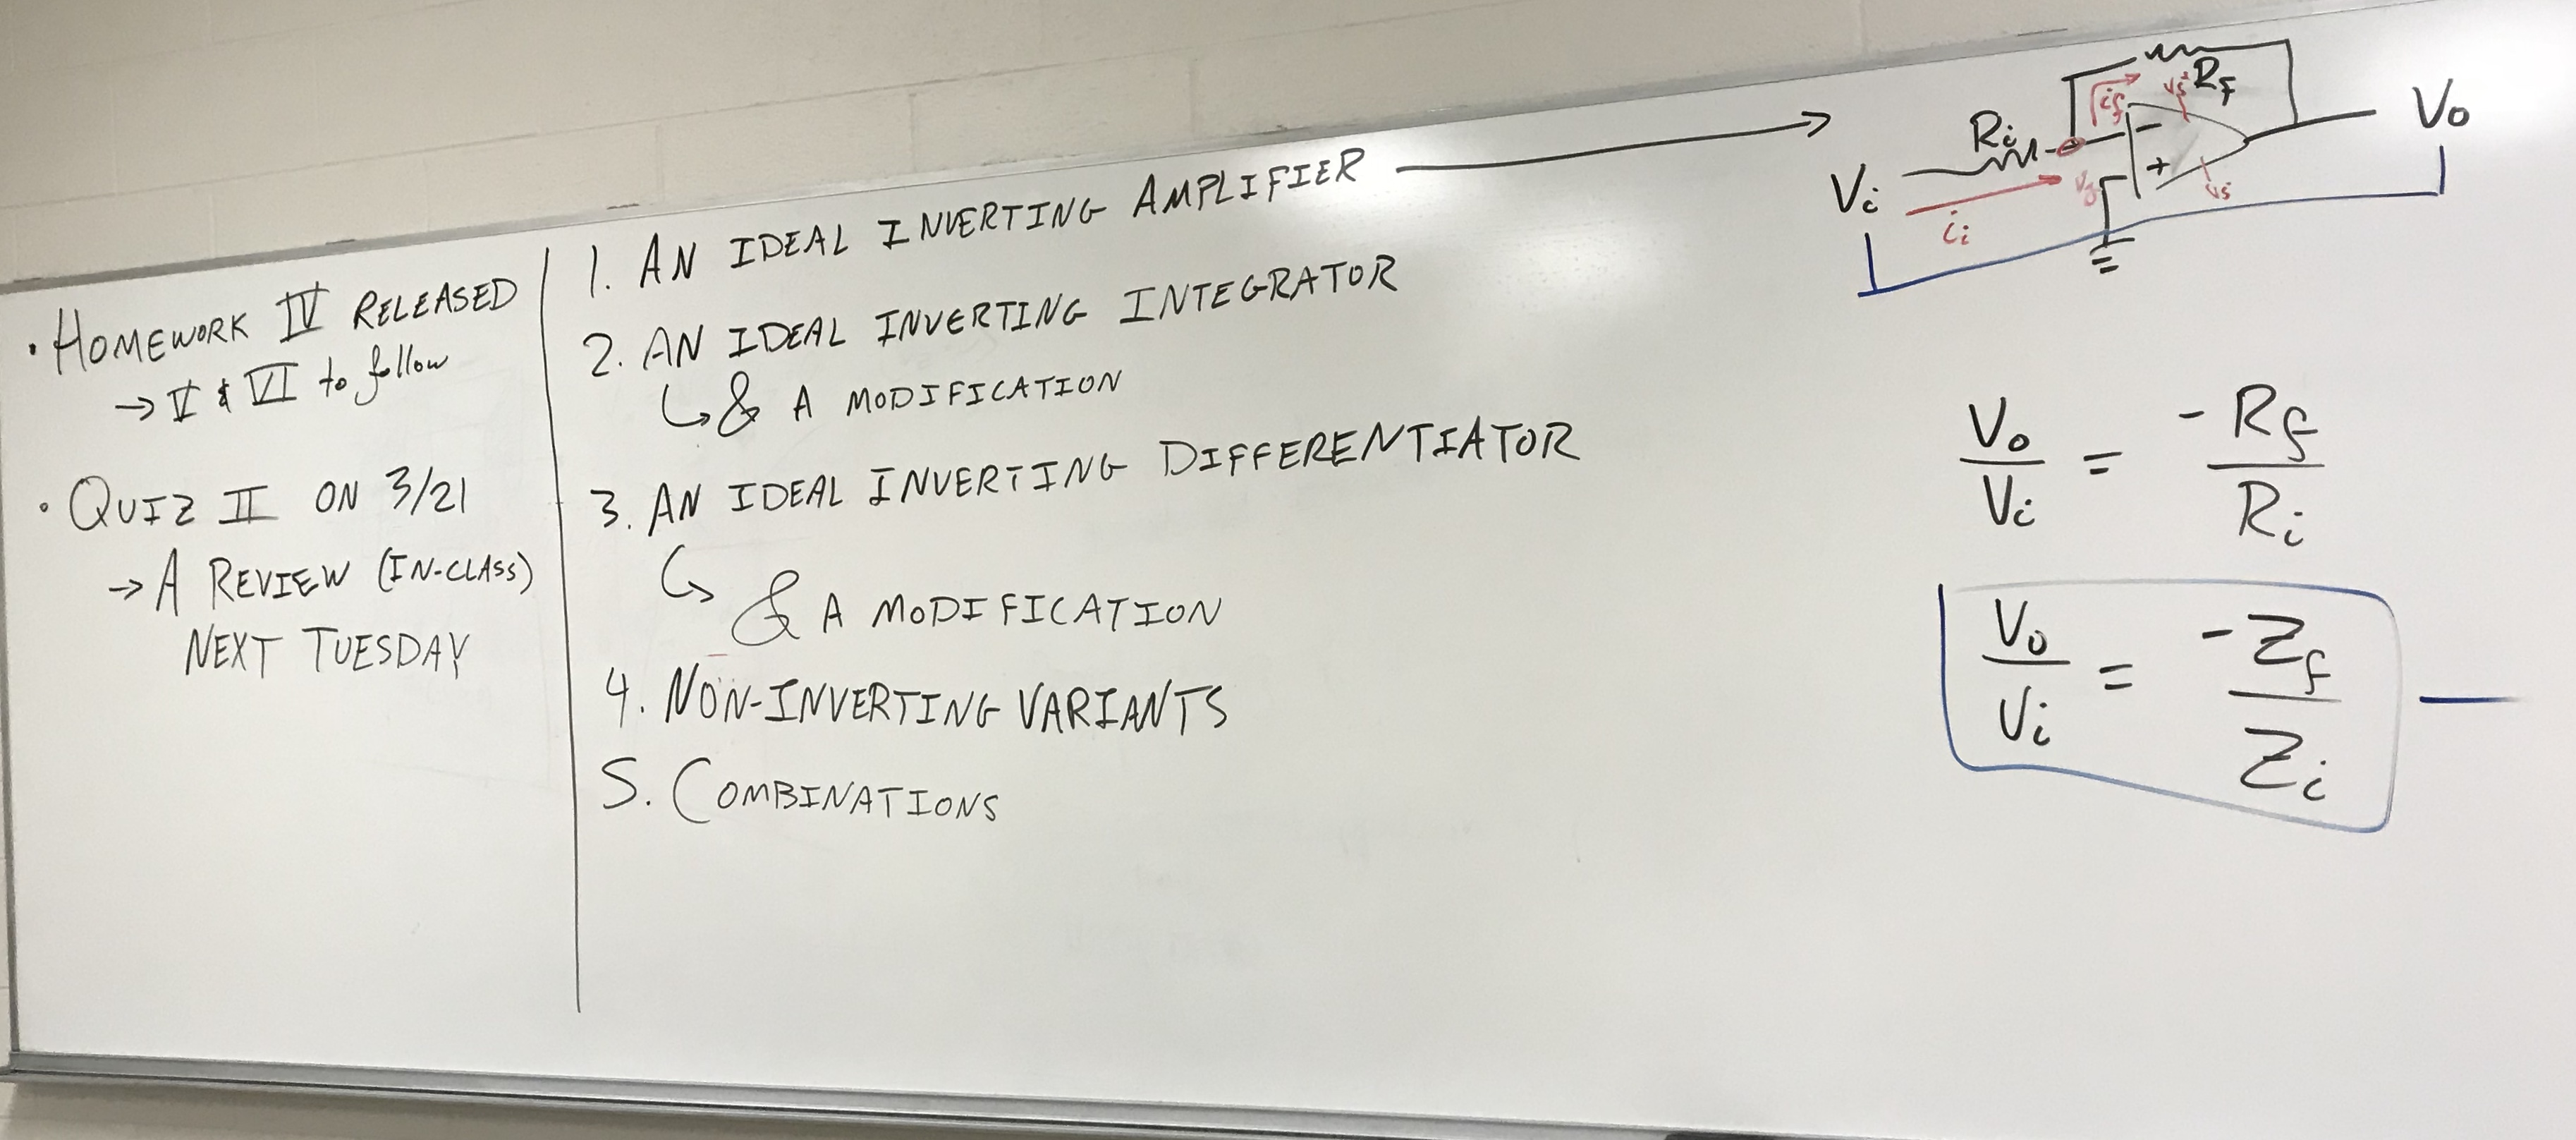 • HOMEWORK IV RELEASED
→ V & VI to follow
• QUIZ II ON 3/21
→ A REVIEW (IN-CLASS)
NEXT TUESDAY
1. AN IDEAL INVERTING AMPLIFIER →
2. AN IDEAL INVERTING INTEGRATOR
↳ & A MODIFICATION
3. AN IDEAL INVERTING DIFFERENTIATOR
↳ & A MODIFICATION
4. NON-INVERTING VARIANTS
5. COMBINATIONS
Rf
if
Vo
Ri
-
+
Vi
ii
Vs
Vo/Vi = -Rf/Ri
Vo/Vi = -Zf/Zi